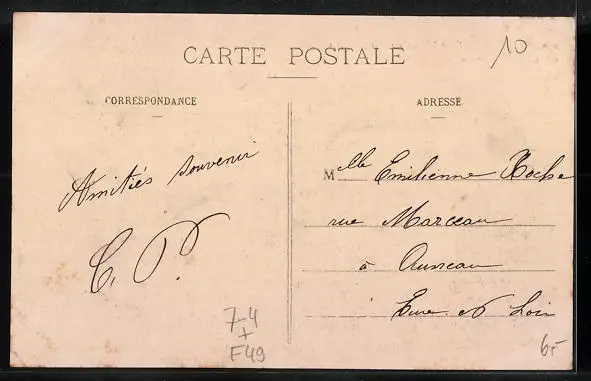 CARTE POSTALE
10
CORRESPONDANCE
Amitiés souvenir
C. P.
ADRESSE
Mlle Emilienne Roche
rue Marceau
à Auneau
Eure et Loir
7-4
+
F49
6,-